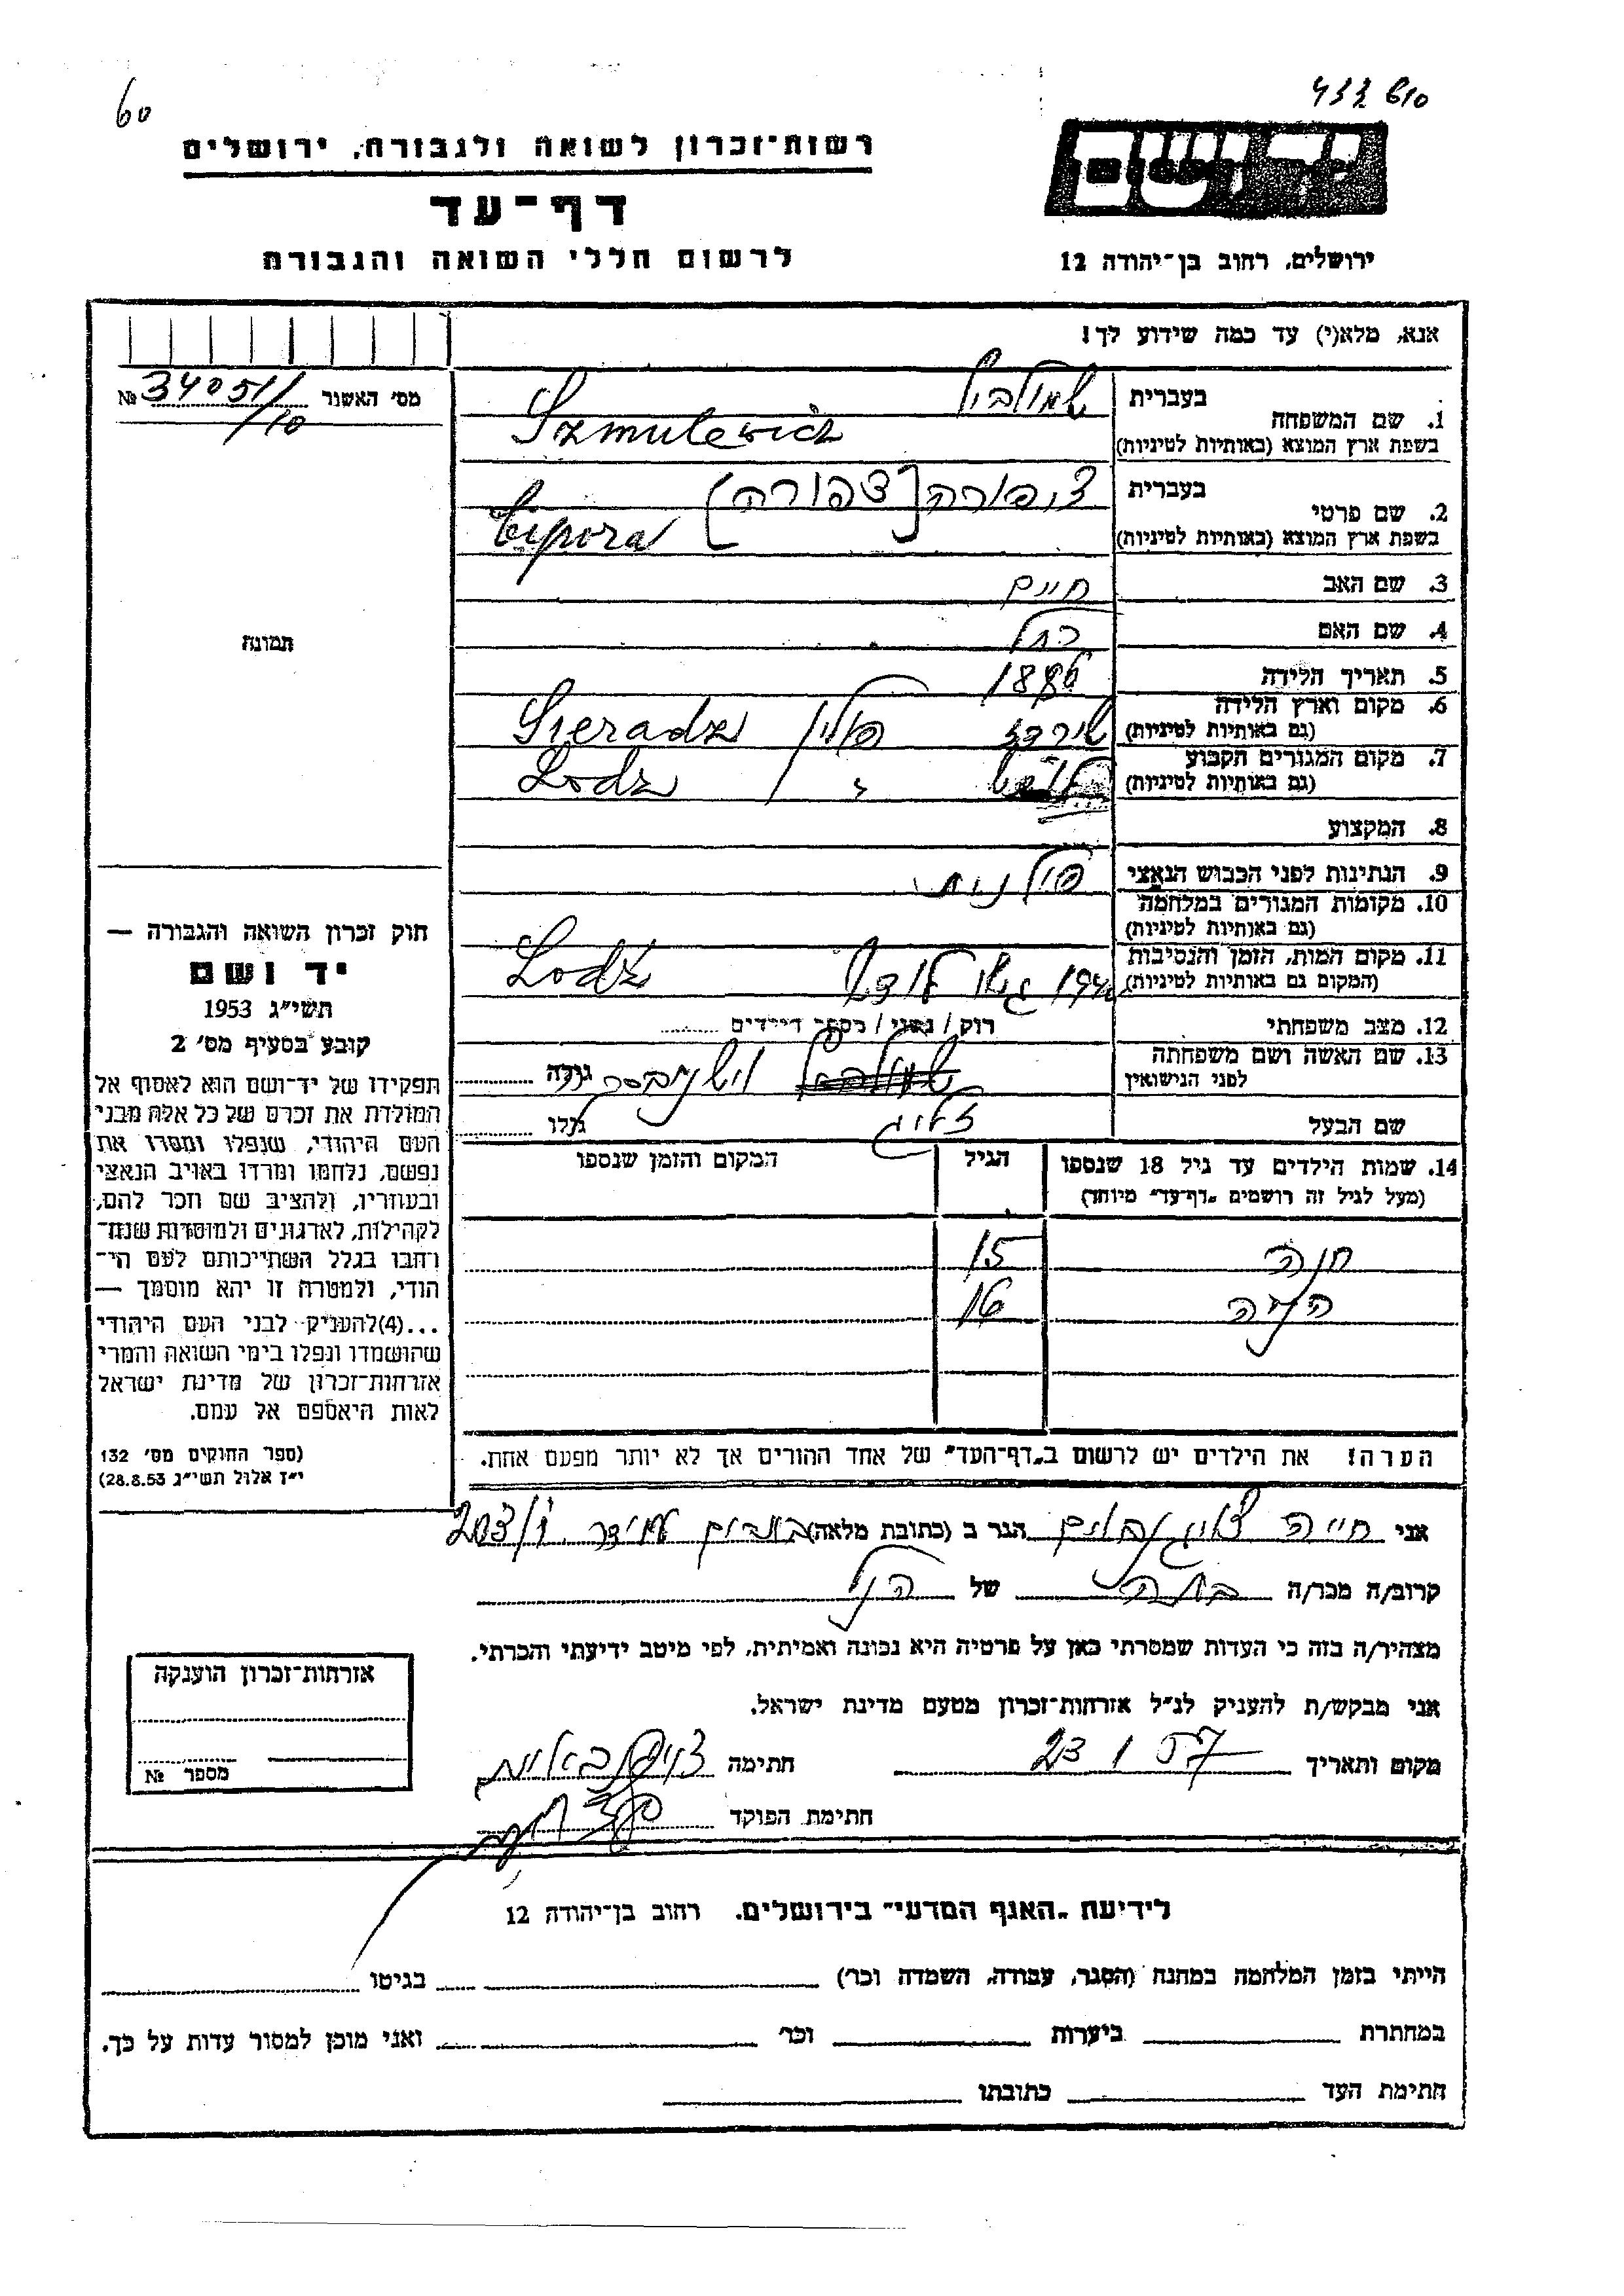 60
433 610
יד ושם
רשות־זכרון לשואה ולגבורה, ירושלים
דף־עד
לרשום חללי השואה והגבורה
ירושלים, רחוב בן־יהודה 12
אנא, מלא(י) עד כמה שידוע לך!
מס׳ האשור № 34051/
/10
תמונה
1. שם המשפחה
בעברית
בשפת ארץ המוצא (באותיות לטיניות)
Szmulewicz
2. שם פרטי
בעברית ציפורה [צפורה]
בשפת ארץ המוצא (באותיות לטיניות)
Cypora
3. שם האב חיים
4. שם האם רחל
5. תאריך הלידה 1886
6. מקום וארץ הלידה
(גם באותיות לטיניות) שירדז פולין / Sieradz
7. מקום המגורים הקבוע
(גם באותיות לטיניות) לודז׳ / Lodz
8. המקצוע
9. הנתינות לפני הכבוש הנאצי פולנית
10. מקומות המגורים במלחמה
(גם באותיות לטיניות)
11. מקום המות, הזמן והנסיבות
(המקום גם באותיות לטיניות) גטו לודז׳ Lodz
12. מצב משפחתי רוק / נשוי / מספר הילדים
13. שם האשה ושם משפחתה
לפני הנישואין
גילה
שם הבעל זליג
גילו
14. שמות הילדים עד גיל 18 שנספו
(מעל לגיל זה רושמים "דף־עד" מיוחד)
הגיל
המקום והזמן שנספו
חנה 15
16
הערה! את הילדים יש לרשום ב"דף־העד" של אחד ההורים אך לא יותר מפעם אחת.
חוק זכרון השואה והגבורה —
יד ושם
תשי״ג 1953
קובע בסעיף מס׳ 2
תפקידו של יד־ושם הוא לאסוף אל
המולדת את זכרם של כל אלה מבני
העם היהודי, שנפלו ומסרו את
נפשם, נלחמו ומרדו באויב הנאצי
ובעוזריו, ולהציב שם וזכר להם,
לקהילות, לארגונים ולמוסדות שנח־
רחבו בגלל השתייכותם לעם הי־
הודי, ולמטרה זו יהא מוסמך —
...(4)להעניק לבני העם היהודי
שהושמדו ונפלו בימי השואה והמרי
אזרחות־זכרון של מדינת ישראל
לאות היאספם אל עמם.
(ספר החוקים מס׳ 132
י״ז אלול תשי״ג 28.8.53)
אני חיה הגר ב (כתובת מלאה)
קרוב/ה מכר/ה בתה של הנ״ל
מצהיר/ה בזה כי העדות שמסרתי כאן על פרטיה היא נכונה ואמיתית, לפי מיטב ידיעתי והכרתי.
אני מבקש/ת להעניק לנ״ל אזרחות־זכרון מטעם מדינת ישראל.
מקום ותאריך 23 1 57 חתימה
חתימת הפוקד
אזרחות־זכרון הוענקה
מספר №
לידיעת "האגף המדעי" בירושלים, רחוב בן־יהודה 12
הייתי בזמן המלחמה במחנה (הסגר, עבודה, השמדה וכו׳) בגיטו
במחתרת ביערות וכו׳ ואני מוכן למסור עדות על כך.
חתימת העד כתובתו